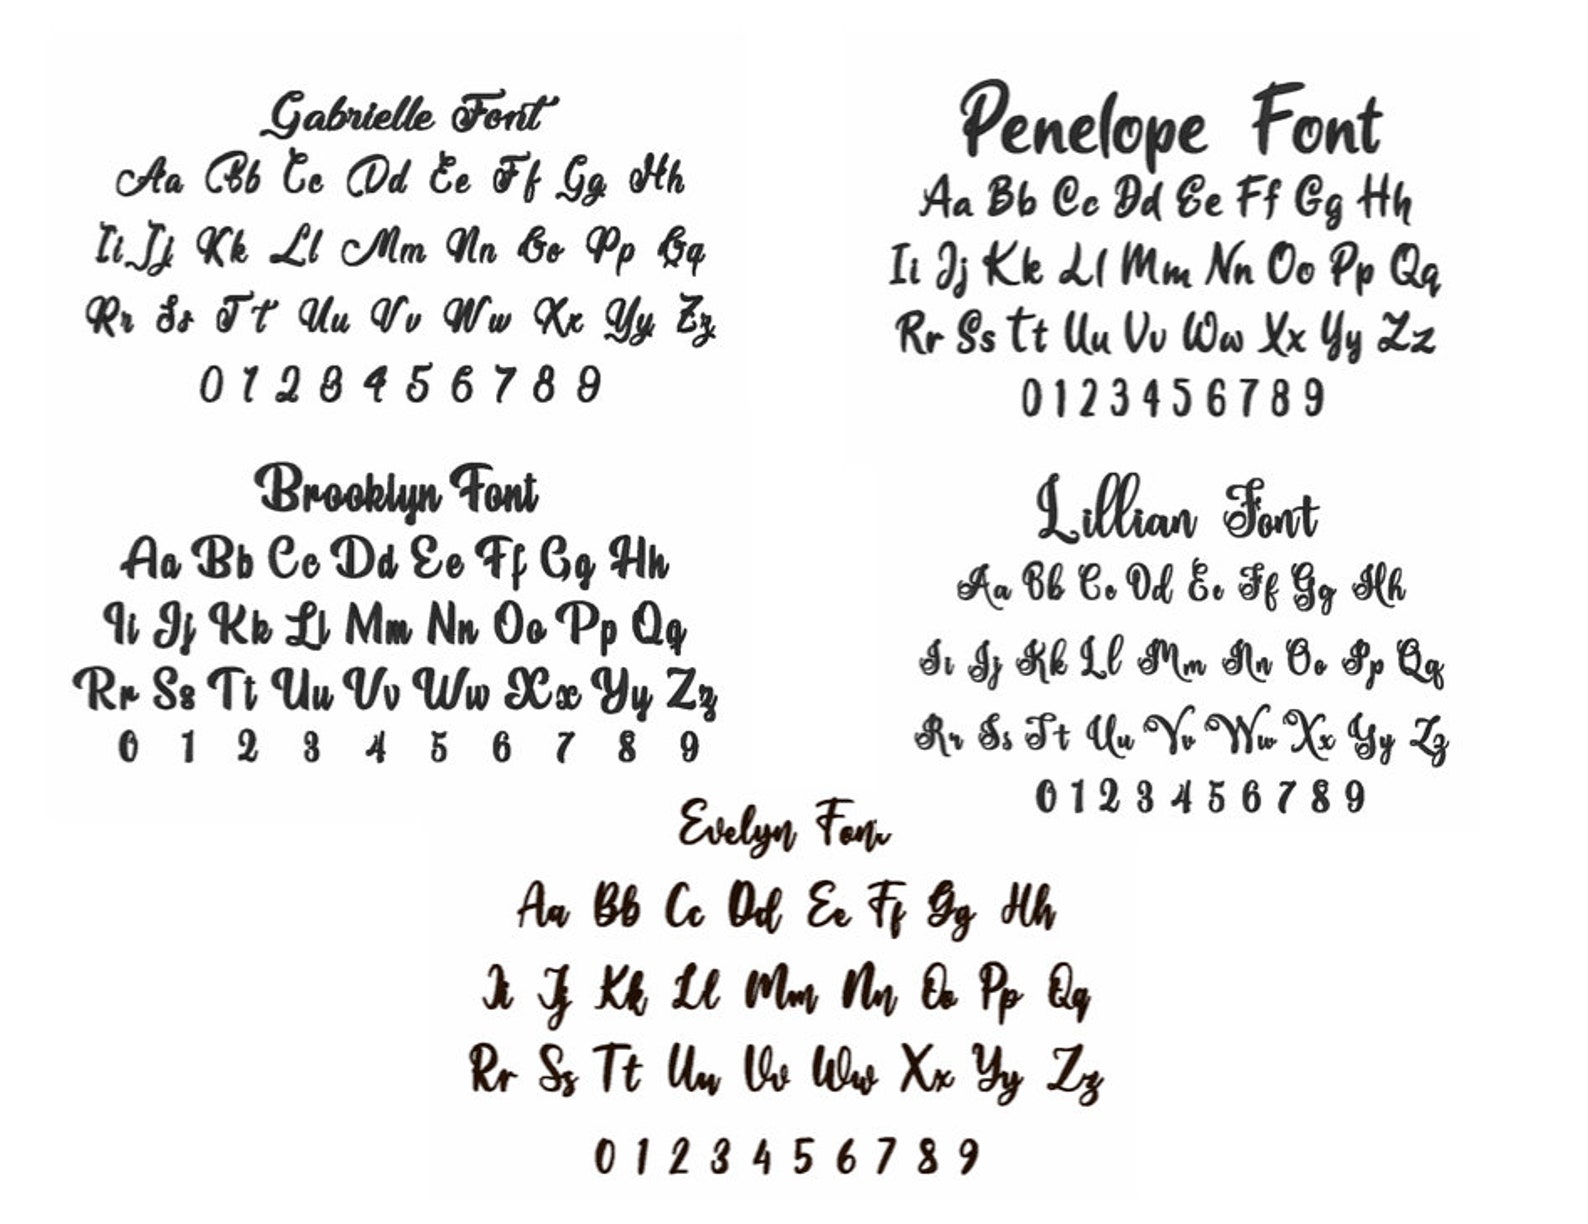 Gabrielle Font
Aa Bb Cc Dd Ee Ff Gg Hh
Ii Jj Kk Ll Mm Nn Oo Pp Qq
Rr Ss Tt Uu Vv Ww Xx Yy Zz
0 1 2 3 4 5 6 7 8 9
Penelope Font
Aa Bb Cc Dd Ee Ff Gg Hh
Ii Jj Kk Ll Mm Nn Oo Pp Qq
Rr Ss Tt Uu Vv Ww Xx Yy Zz
0 1 2 3 4 5 6 7 8 9
Brooklyn Font
Aa Bb Cc Dd Ee Ff Gg Hh
Ii Jj Kk Ll Mm Nn Oo Pp Qq
Rr Ss Tt Uu Vv Ww Xx Yy Zz
0 1 2 3 4 5 6 7 8 9
Lillian Font
Aa Bb Cc Dd Ee Ff Gg Hh
Ii Jj Kk Ll Mm Nn Oo Pp Qq
Rr Ss Tt Uu Vv Ww Xx Yy Zz
0 1 2 3 4 5 6 7 8 9
Evelyn Font
Aa Bb Cc Dd Ee Ff Gg Hh
Ii Jj Kk Ll Mm Nn Oo Pp Qq
Rr Ss Tt Uu Vv Ww Xx Yy Zz
0 1 2 3 4 5 6 7 8 9